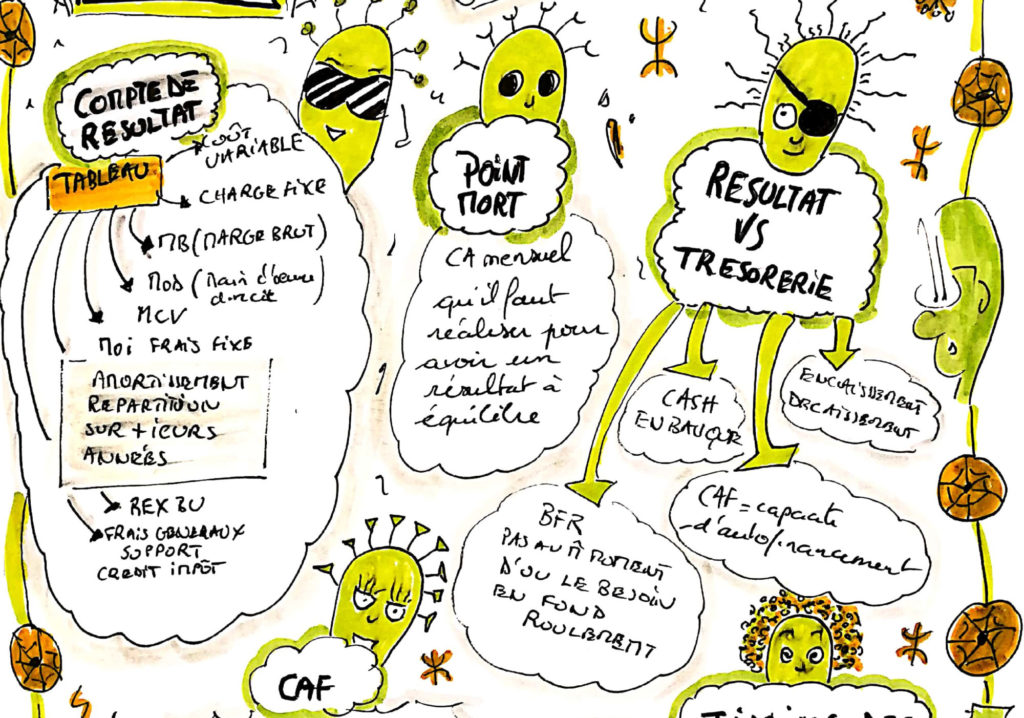 COMPTE DE
RESULTAT
TABLEAU
COÛT
VARIABLE
CHARGE FIXE
MB (MARGE BRUT)
MOD (Main d'œuvre
direct)
MCV
MOI FRAIS FIXE
AMORTISSEMENT
REPARTITION
SUR +IEURS
ANNÉES
REX BU
FRAIS GENERAUX
SUPPORT
CREDIT IMPÔT
POINT
MORT
CA mensuel
qu'il faut
réaliser pour
avoir un
résultat à
équilibre
RESULTAT
VS
TRESORERIE
CASH
EN BANQUE
ENCAISSEMENT
DECAISSEMENT
BFR
PAS AU M̂ MOMENT
D'OU LE BESOIN
EN FOND
ROULEMENT
CAF = capacité
d'autofinancement
CAF